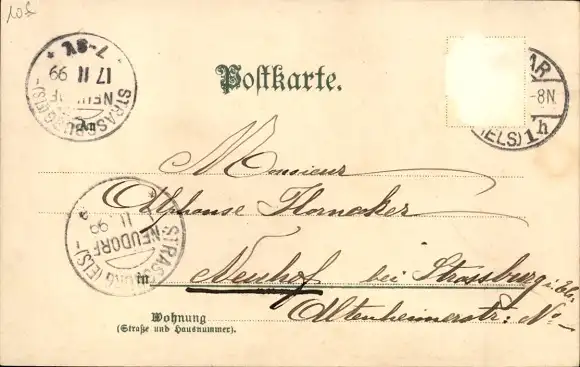 10 f
Postkarte.
STRASSBURG (ELS)-NEUDORF
17 11 99
7-8V.
AR
-8N.
(ELS) 1h
An
Monsieur
Alphonse Hornecker
STRASSBURG (ELS)-NEUDORF
11 99
in Neuhof bei Strassburg i. Els.
Altenheimerstr: No -
Wohnung
(Straße und Hausnummer).